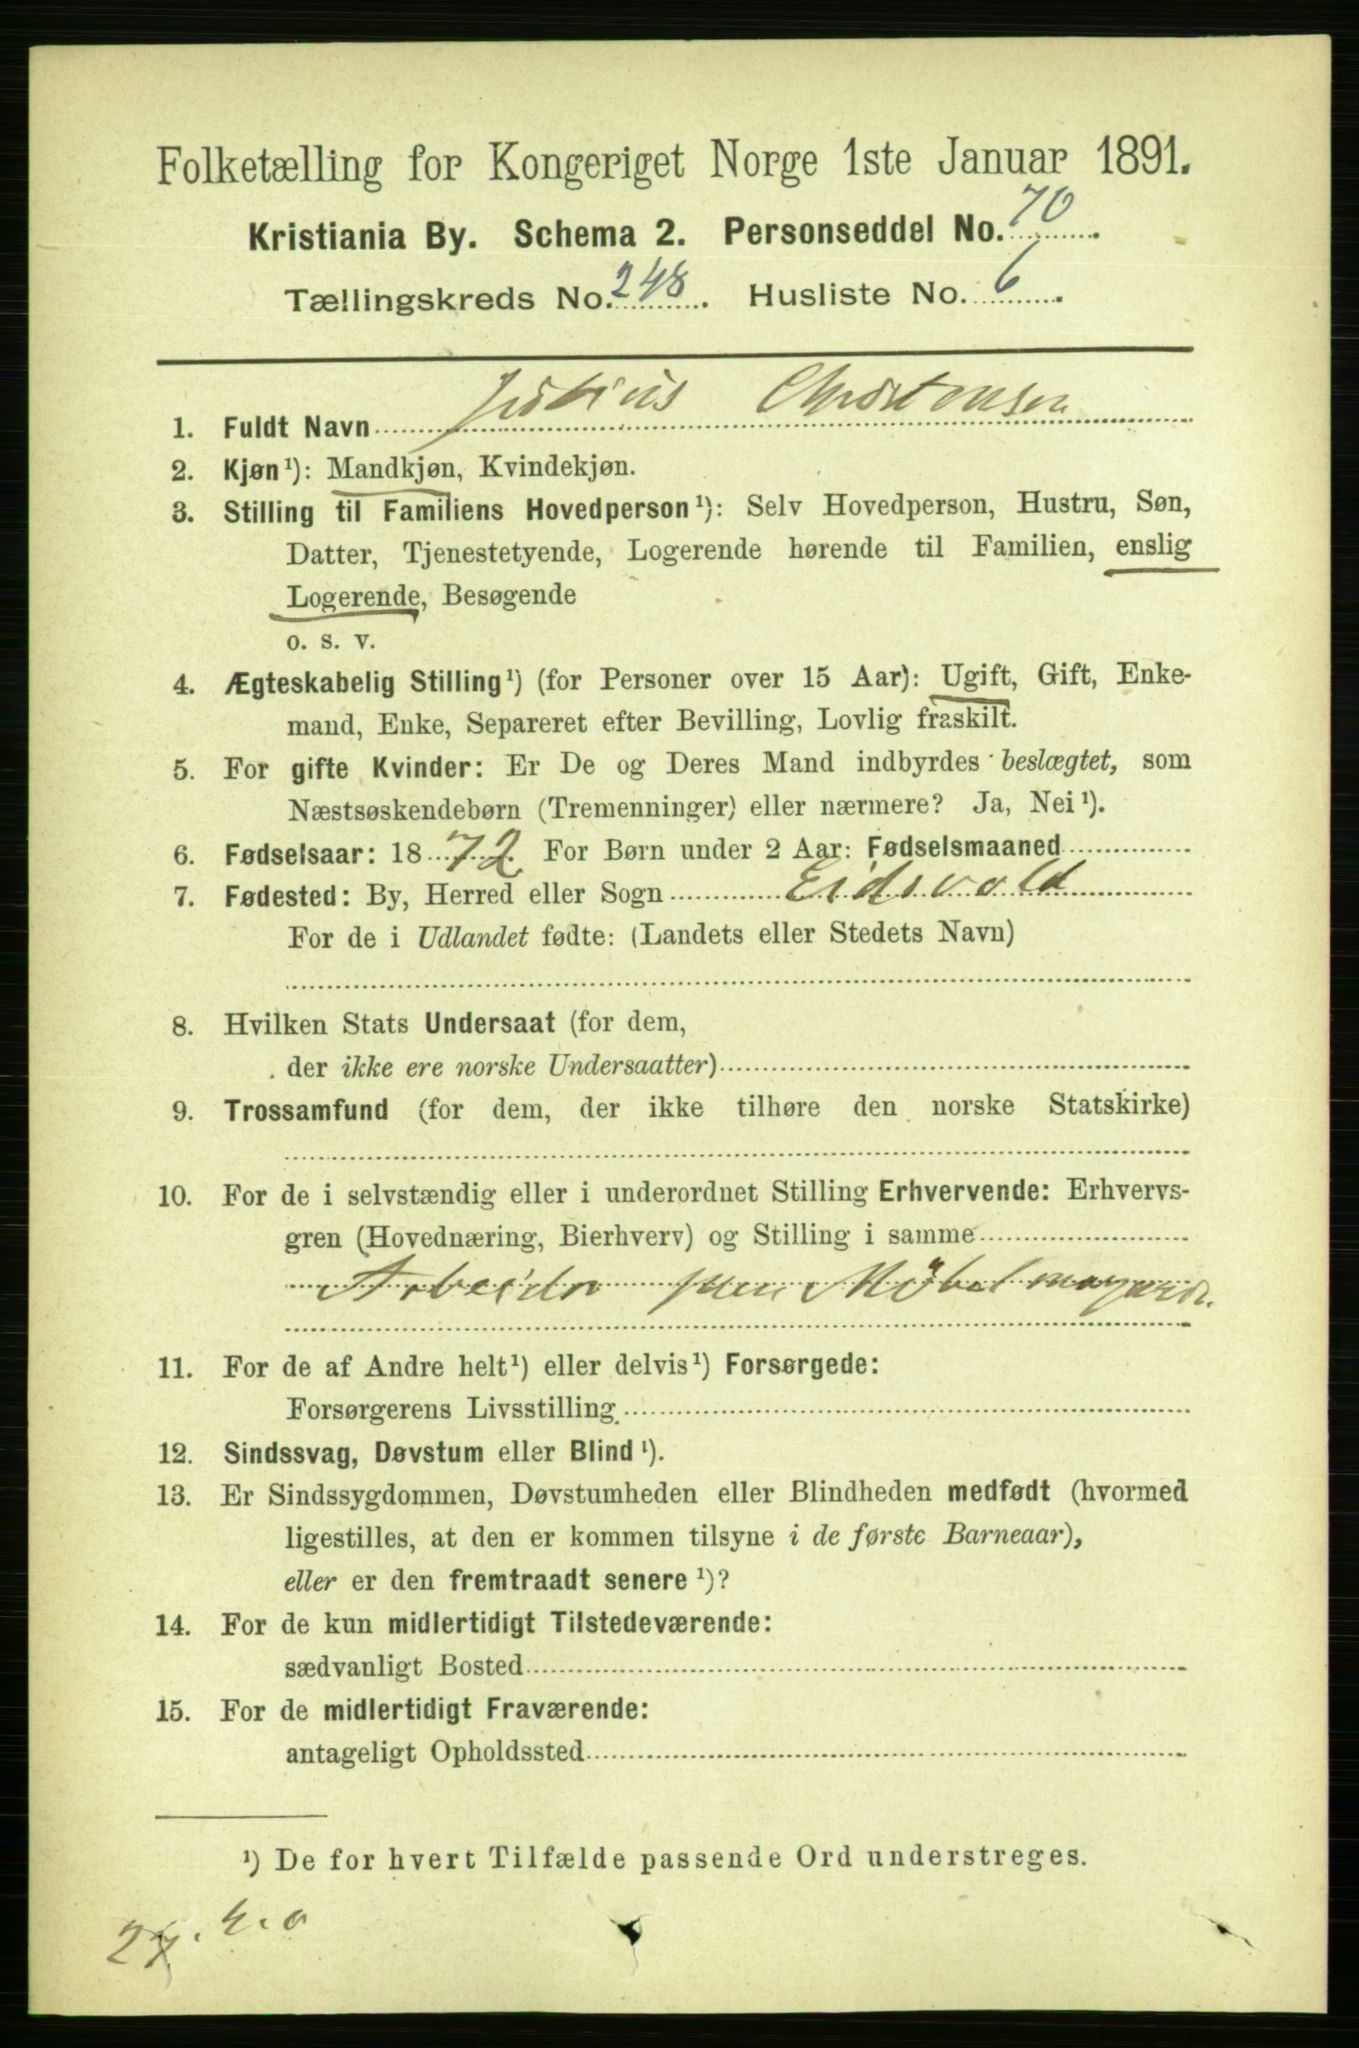 Folketælling for Kongeriget Norge 1ste Januar 1891.
Kristiania By. Schema 2. Personseddel No. 70
Tællingskreds No. 248. Husliste No. 6
1. Fuldt Navn Julius Christensen
2. Kjøn¹): Mandkjøn, Kvindekjøn.
3. Stilling til Familiens Hovedperson¹): Selv Hovedperson, Hustru, Søn,
Datter, Tjenestetyende, Logerende hørende til Familien, enslig
Logerende, Besøgende
o. s. v.
4. Ægteskabelig Stilling¹) (for Personer over 15 Aar): Ugift, Gift, Enke-
mand, Enke, Separeret efter Bevilling, Lovlig fraskilt.
5. For gifte Kvinder: Er De og Deres Mand indbyrdes beslægtet, som
Næstsøskendebørn (Tremenninger) eller nærmere? Ja, Nei¹).
6. Fødselsaar: 1872. For Børn under 2 Aar: Fødselsmaaned
7. Fødested: By, Herred eller Sogn Eidsvold
For de i Udlandet fødte: (Landets eller Stedets Navn)
8. Hvilken Stats Undersaat (for dem,
der ikke ere norske Undersaatter)
9. Trossamfund (for dem, der ikke tilhøre den norske Statskirke)
10. For de i selvstændig eller i underordnet Stilling Erhvervende: Erhvervs-
gren (Hovednæring, Bierhverv) og Stilling i samme
Arbeider Møbelmagasin.
11. For de af Andre helt¹) eller delvis¹) Forsørgede:
Forsørgerens Livsstilling
12. Sindssvag, Døvstum eller Blind¹).
13. Er Sindssygdommen, Døvstumheden eller Blindheden medfødt (hvormed
ligestilles, at den er kommen tilsyne i de første Barneaar),
eller er den fremtraadt senere¹)?
14. For de kun midlertidigt Tilstedeværende:
sædvanligt Bosted
15. For de midlertidigt Fraværende:
antageligt Opholdssted
¹) De for hvert Tilfælde passende Ord understreges.